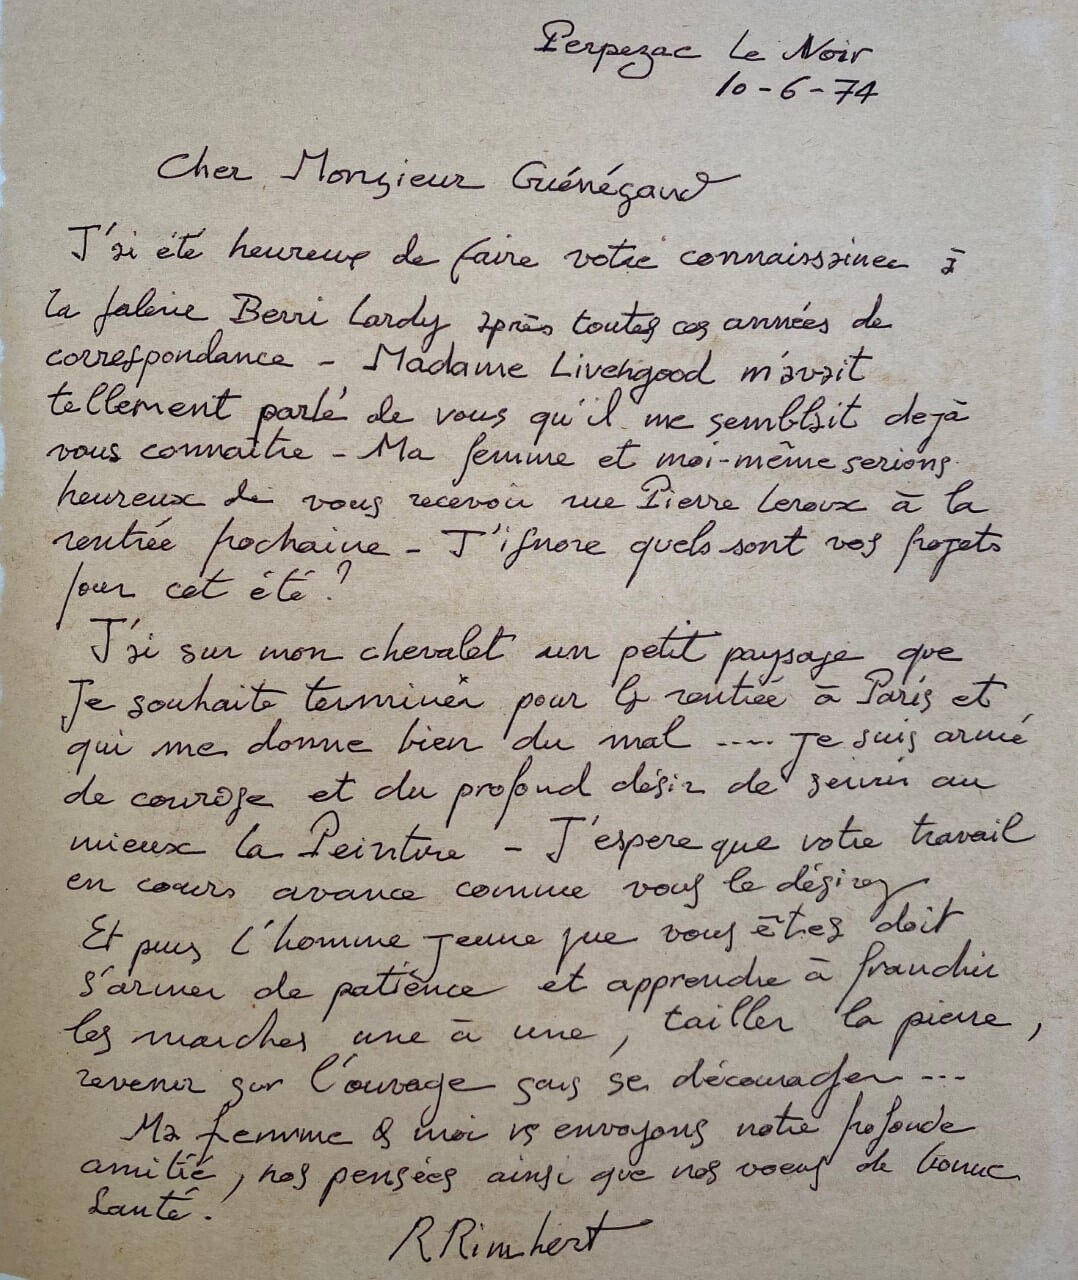 Perpezac Le Noir
10-6-74
Cher Monsieur Guénégaud
J'ai été heureux de faire votre connaissance à
la galerie Berri Lardy après toutes ces années de
correspondance - Madame Livengood m'avait
tellement parlé de vous qu'il me semblait dejà
vous connaître - Ma femme et moi-même serions
heureux de vous recevoir rue Pierre Leroux à la
rentrée prochaine - J'ignore quels sont vos projets
pour cet été ?
J'ai sur mon chevalet un petit paysage que
je souhaite terminer pour la rentrée à Paris et
qui me donne bien du mal .... je suis armé
de courage et du profond désir de servir au
mieux la Peinture - J'espere que votre travail
en cours avance comme vous le désirez
Et puis l'homme jeune que vous êtes doit
s'armer de patience et apprendre à franchir
les marches une à une, tailler la pierre,
revenir sur l'ouvrage sans se décourager ...
Ma femme & moi vs envoyons notre profonde
amitié, nos pensées ainsi que nos voeux de bonne
Santé.
R Rimbert